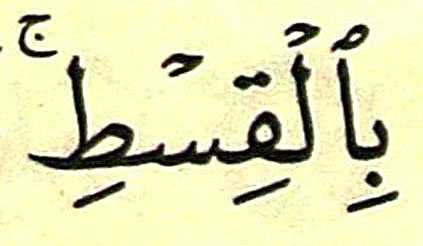 بِٱلْقِسْطِ ۚ